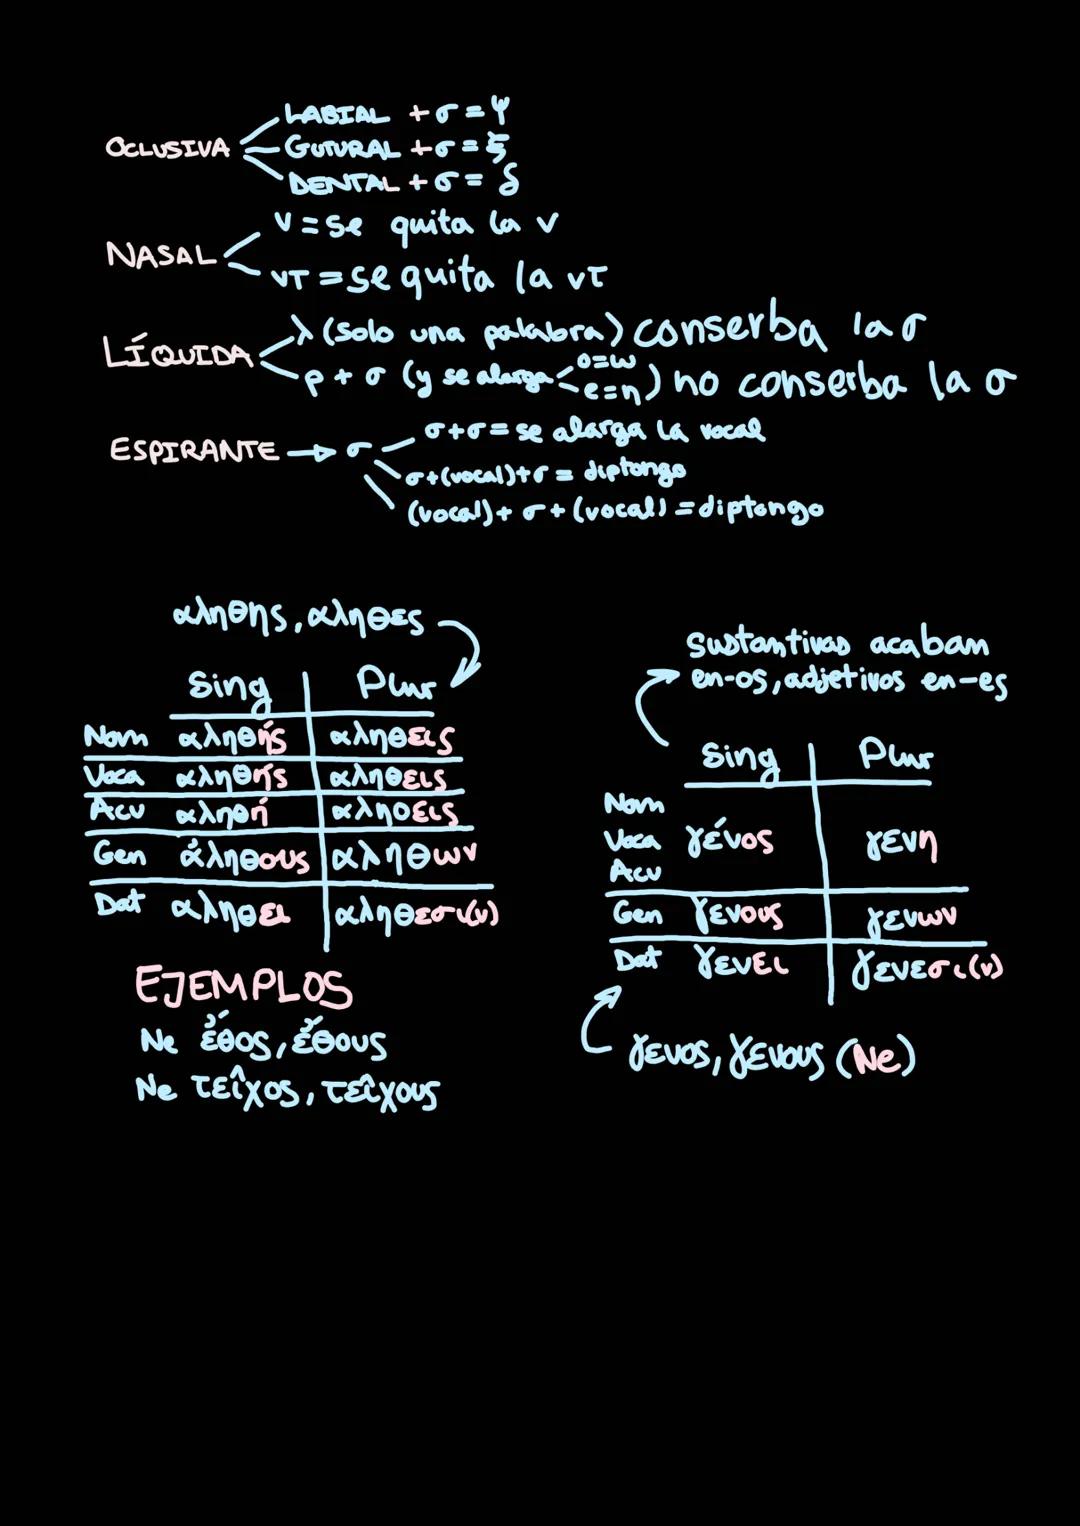 OCLUSIVA
LABIAL + σ = ψ
GUTURAL + σ = ξ
DENTAL + σ = δ
NASAL
ν = se quita la ν
ντ = se quita la ντ
LÍQUIDA
λ (solo una palabra) conserba la σ
ρ + σ (y se alarga o=ω e=η) no conserba la σ
ESPIRANTE → σ
σ+σ = se alarga la vocal
σ+(vocal)+σ = diptongo
(vocal)+ σ + (vocal) = diptongo
αληθης, αληθες
Sing Plur
Nom αληθής αληθεις
Voca αληθής αληθεις
Acu αληθή αληθεις
Gen άληθους αληθων
Dat αληθει αληθεσι(ν)
EJEMPLOS
Ne ἔθος, ἔθους
Ne τεῖχος, τεῖχους
Sustantivos acaban
en-os, adjetivos en-es
Sing Plur
Nom
Voca γένος γενη
Acu
Gen γενους γενων
Dat γενει γενεσι(ν)
γενος, γενους (Ne)